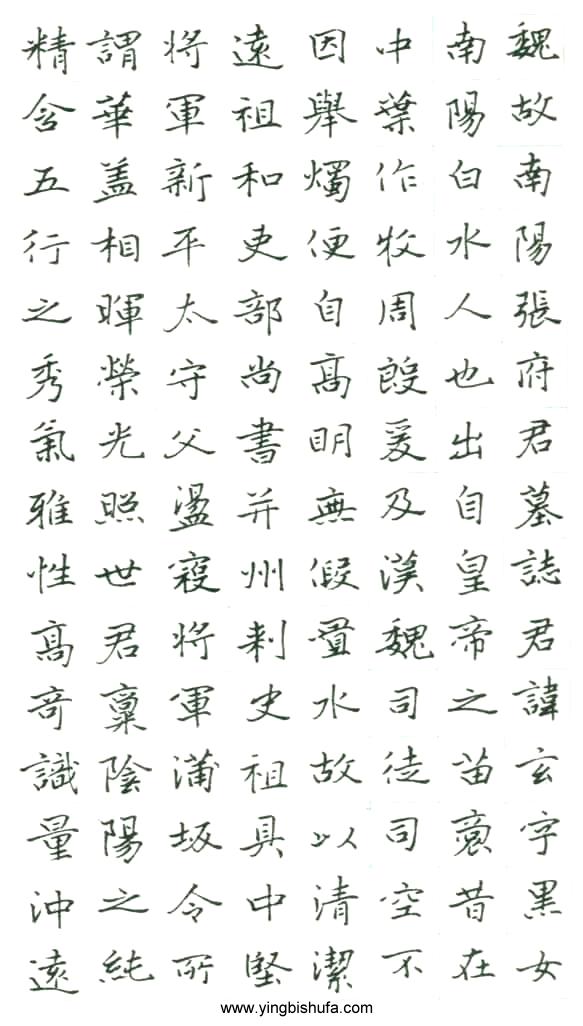 魏故南陽張府君墓誌君諱玄字黑女
南陽白水人也出自皇帝之苗裔昔在
中葉作牧周殷爰及漢魏司徒司空不
因舉燭便自髙眀無假置水故以清潔
遠祖和吏部尚書并州刺史祖具中堅
将軍新平太守父盪寇将軍蒲坂令所
謂華盖相暉榮光照世君稟陰陽之純
精含五行之秀氣雅性髙奇識量沖遠
www.yingbishufa.com